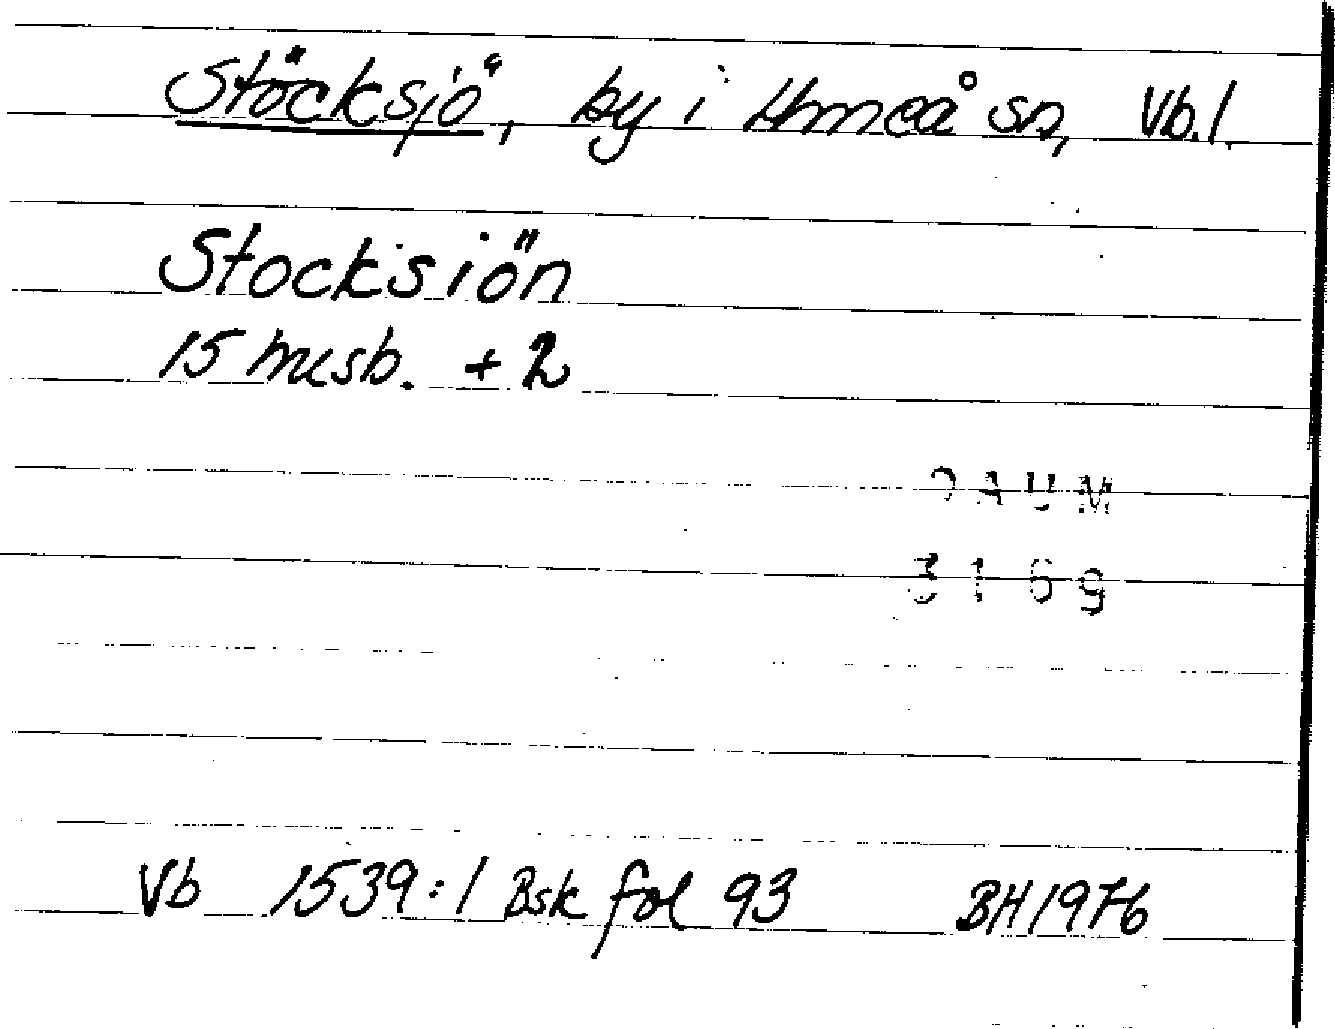 Stöcksjö, by i Umeå sn, Vb.l.
Stocksiön
15 mcsb. + 2
DAUM
3169
Vb 1539:1 Bsk fol 93 BH1976